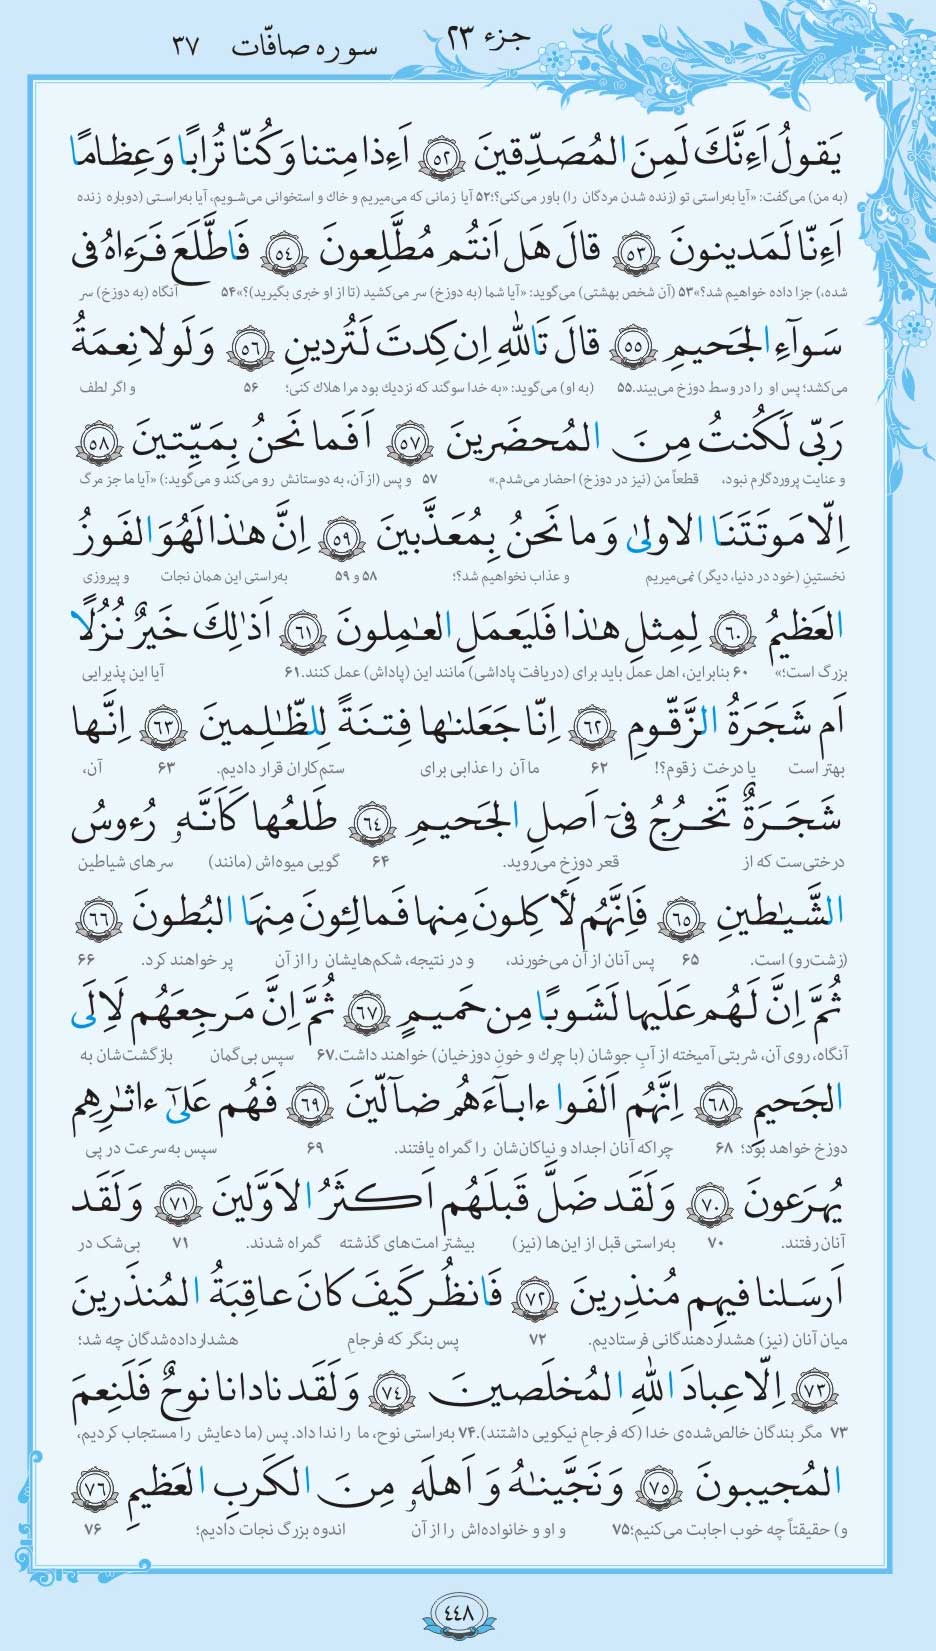 جزء ۲۳ سوره صافّات ۳۷
يَقولُ اَءِنَّكَ لَمِنَ المُصَدِّقينَ ﴿٥٢﴾ اَءِذا مِتنا وَ كُنّا تُرابًا وَ عِظامًا
(به من) می‌گفت: «آیا به‌راستی تو (زنده شدن مردگان را) باور می‌کنی؟؛۵۲ آیا زمانی که می‌میریم و خاك و استخوانی می‌شویم، آیا به‌راستی (دوباره زنده
اَءِنّا لَمَدينونَ ﴿٥٣﴾ قالَ هَل اَنتُم مُطَّلِعونَ ﴿٥٤﴾ فَاطَّلَعَ فَرَءاهُ فى
شده،) جزا داده خواهیم شد؟»۵۳ (آن شخص بهشتی) می‌گوید: «آیا شما (به دوزخ) سر می‌کشید (تا از او خبری بگیرید)؟»۵۴ آنگاه (به دوزخ) سر
سَوآءِ الجَحيمِ ﴿٥٥﴾ قالَ تَاللهِ اِن كِدتَ لَتُردينِ ﴿٥٦﴾ وَ لَولا نِعمَةُ
می‌کشد؛ پس او را در وسط دوزخ می‌بیند.۵۵ (به او) می‌گوید: «به خدا سوگند که نزدیك بود مرا هلاك کنی؛ ۵۶ و اگر لطف
رَبّى لَكُنتُ مِنَ المُحضَرينَ ﴿٥٧﴾ اَفَما نَحنُ بِمَيِّتينَ ﴿٥٨﴾
و عنایت پروردگارم نبود، قطعاً من (نیز در دوزخ) احضار می‌شدم.» ۵۷ و پس (از آن، به دوستانش رو می‌کند و می‌گوید:) «آیا ما جز مرگ
اِلّا مَوتَتَنَا الاولىٰ وَ ما نَحنُ بِمُعَذَّبينَ ﴿٥٩﴾ اِنَّ هٰذا لَهُوَ الفَوزُ
نخستینِ (خود در دنیا، دیگر) نمی‌میریم و عذاب نخواهیم شد؟؛ ۵۸ و ۵۹ به‌راستی این همان نجات و پیروزی
العَظيمُ ﴿٦٠﴾ لِمِثلِ هٰذا فَليَعمَلِ العٰمِلونَ ﴿٦١﴾ اَذٰلِكَ خَيرٌ نُزُلًا
بزرگ است؛» ۶۰ بنابراین، اهل عمل باید برای (دریافت پاداشی) مانند این (پاداش) عمل کنند.۶۱ آیا این پذیرایی
اَم شَجَرَةُ الزَّقّومِ ﴿٦٢﴾ اِنّا جَعَلنٰها فِتنَةً لِلظّٰلِمينَ ﴿٦٣﴾ اِنَّها
بهتر است یا درخت زقوم؟! ۶۲ ما آن را عذابی برای ستم‌کاران قرار دادیم. ۶۳ آن،
شَجَرَةٌ تَخرُجُ فىٓ اَصلِ الجَحيمِ ﴿٦٤﴾ طَلعُها كَاَنَّهو رُءوسُ
درختی‌ست که از قعر دوزخ می‌روید. ۶۴ گویی میوه‌اش (مانند) سرهای شیاطین
الشَّيٰطينِ ﴿٦٥﴾ فَاِنَّهُم لَأٰكِلونَ مِنها فَمالِئونَ مِنهَا البُطونَ ﴿٦٦﴾
(زشت‌رو) است. ۶۵ پس آنان از آن می‌خورند، و در نتیجه، شکم‌هایشان را از آن پر خواهند کرد. ۶۶
ثُمَّ اِنَّ لَهُم عَلَيها لَشَوبًا مِن حَميمٍ ﴿٦٧﴾ ثُمَّ اِنَّ مَرجِعَهُم لَاِلَى
آنگاه، روی آن، شربتی آمیخته از آبِ جوشان (با چرك و خونِ دوزخیان) خواهند داشت.۶۷ سپس بی‌گمان بازگشت‌شان به
الجَحيمِ ﴿٦٨﴾ اِنَّهُم اَلفَوا ءابآءَهُم ضآلّينَ ﴿٦٩﴾ فَهُم عَلىٰٓ ءاثٰرِهِم
دوزخ خواهد بود؛ ۶۸ چراکه آنان اجداد و نیاکان‌شان را گمراه یافتند. ۶۹ سپس به‌سرعت در پی
يُهرَعونَ ﴿٧٠﴾ وَ لَقَد ضَلَّ قَبلَهُم اَكثَرُ الاَوَّلينَ ﴿٧١﴾ وَ لَقَد
آنان رفتند. ۷۰ به‌راستی قبل از این‌ها (نیز) بیشتر امت‌های گذشته گمراه شدند. ۷۱ بی‌شک در
اَرسَلنا فيهِم مُنذِرينَ ﴿٧٢﴾ فَانظُر كَيفَ كانَ عاقِبَةُ المُنذَرينَ
میان آنان (نیز) هشداردهندگانی فرستادیم. ۷۲ پس بنگر که فرجامِ هشدارداده‌شدگان چه شد؛
﴿٧٣﴾ اِلّا عِبادَ اللهِ المُخلَصينَ ﴿٧٤﴾ وَ لَقَد نادانا نوحٌ فَلَنِعمَ
۷۳ مگر بندگان خالص‌شده‌ی خدا (که فرجامِ نیکویی داشتند).۷۴ به‌راستی نوح، ما را ندا داد. پس (ما دعایش را مستجاب کردیم،
المُجيبونَ ﴿٧٥﴾ وَ نَجَّينٰهُ وَ اَهلَهو مِنَ الكَربِ العَظيمِ ﴿٧٦﴾
و) حقیقتاً چه خوب اجابت می‌کنیم؛۷۵ و او و خانواده‌اش را از آن اندوه بزرگ نجات دادیم؛ ۷۶
٤٤٨